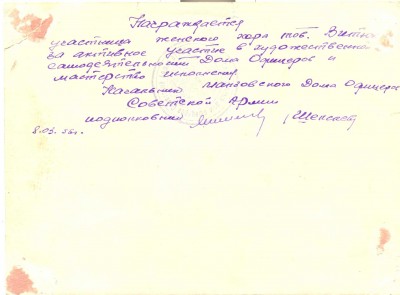 Награждается
участница женского хора тов.
за активное участие в художественной
самодеятельности Дома Офицеров и
мастерство исполнения.
Начальник Дома Офицеров
Советской Армии
подполковник
8.03.56г.